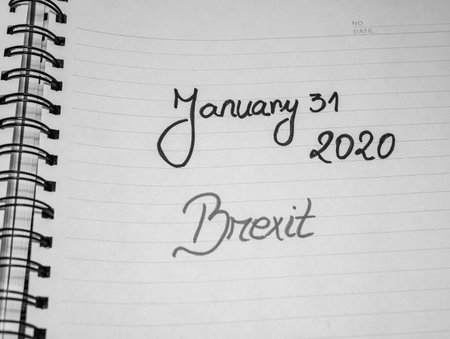 NO.
DATE.
January 31
2020
Brexit